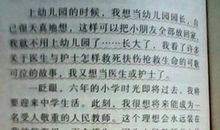 上幼儿园的时候，我想当幼儿园园长，自
己很天真地想，这样可以把小朋友全部放回家，
我就不用上幼儿园了……长大了，我看了许多
关于医生与护士怎样救死扶伤抢救生命的可歌
可泣的故事，我又想当医生或护士了。
一眨眼，六年的小学时光即将过去，我将
要迎来中学生活。此刻，我很想将来能成为一
名受人敬重的人民教师。这个理想会永远在